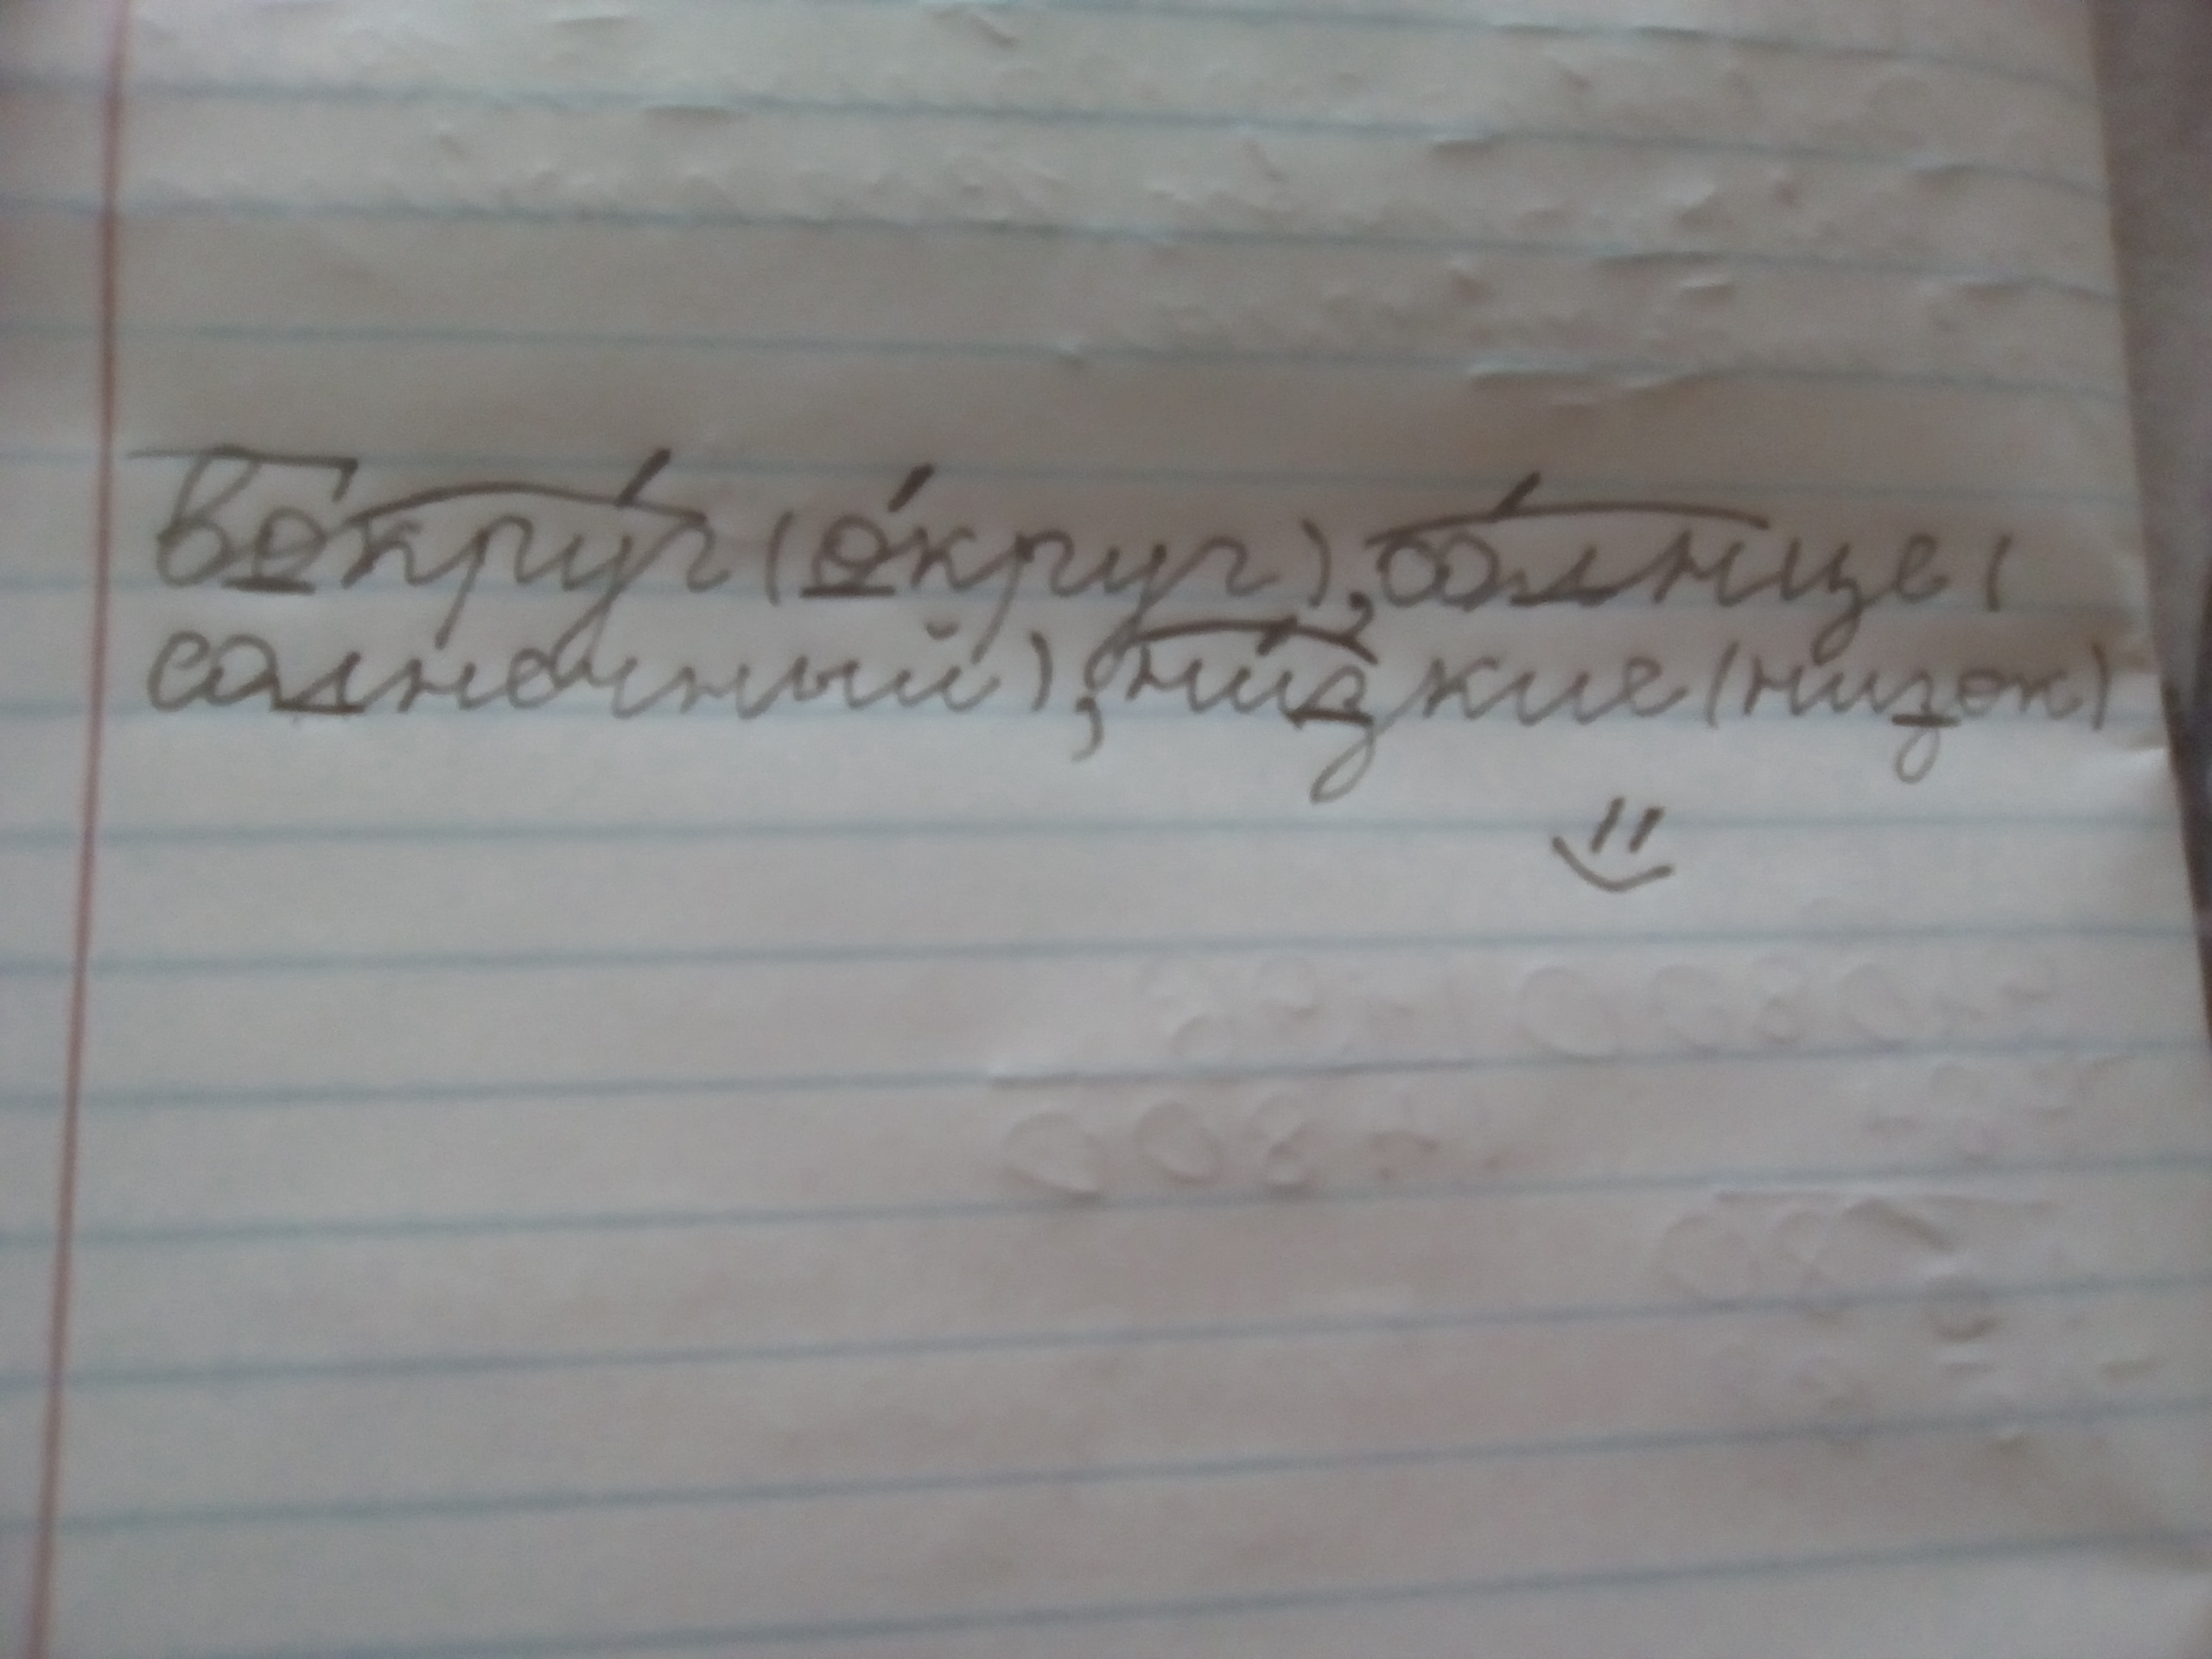 вокру́г (о́круг), со́лнце (
солнечный), ни́зкие (низок)